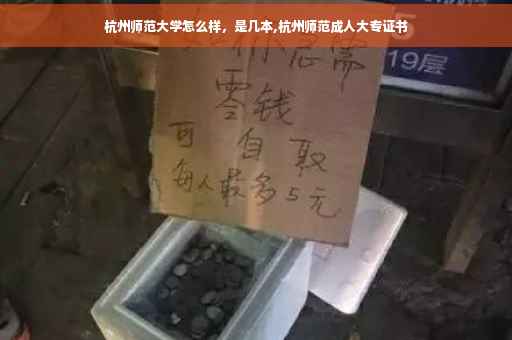 杭州师范大学怎么样，是几本,杭州师范成人大专证书
如你急需
零钱
可自取
每人最多5元
19层